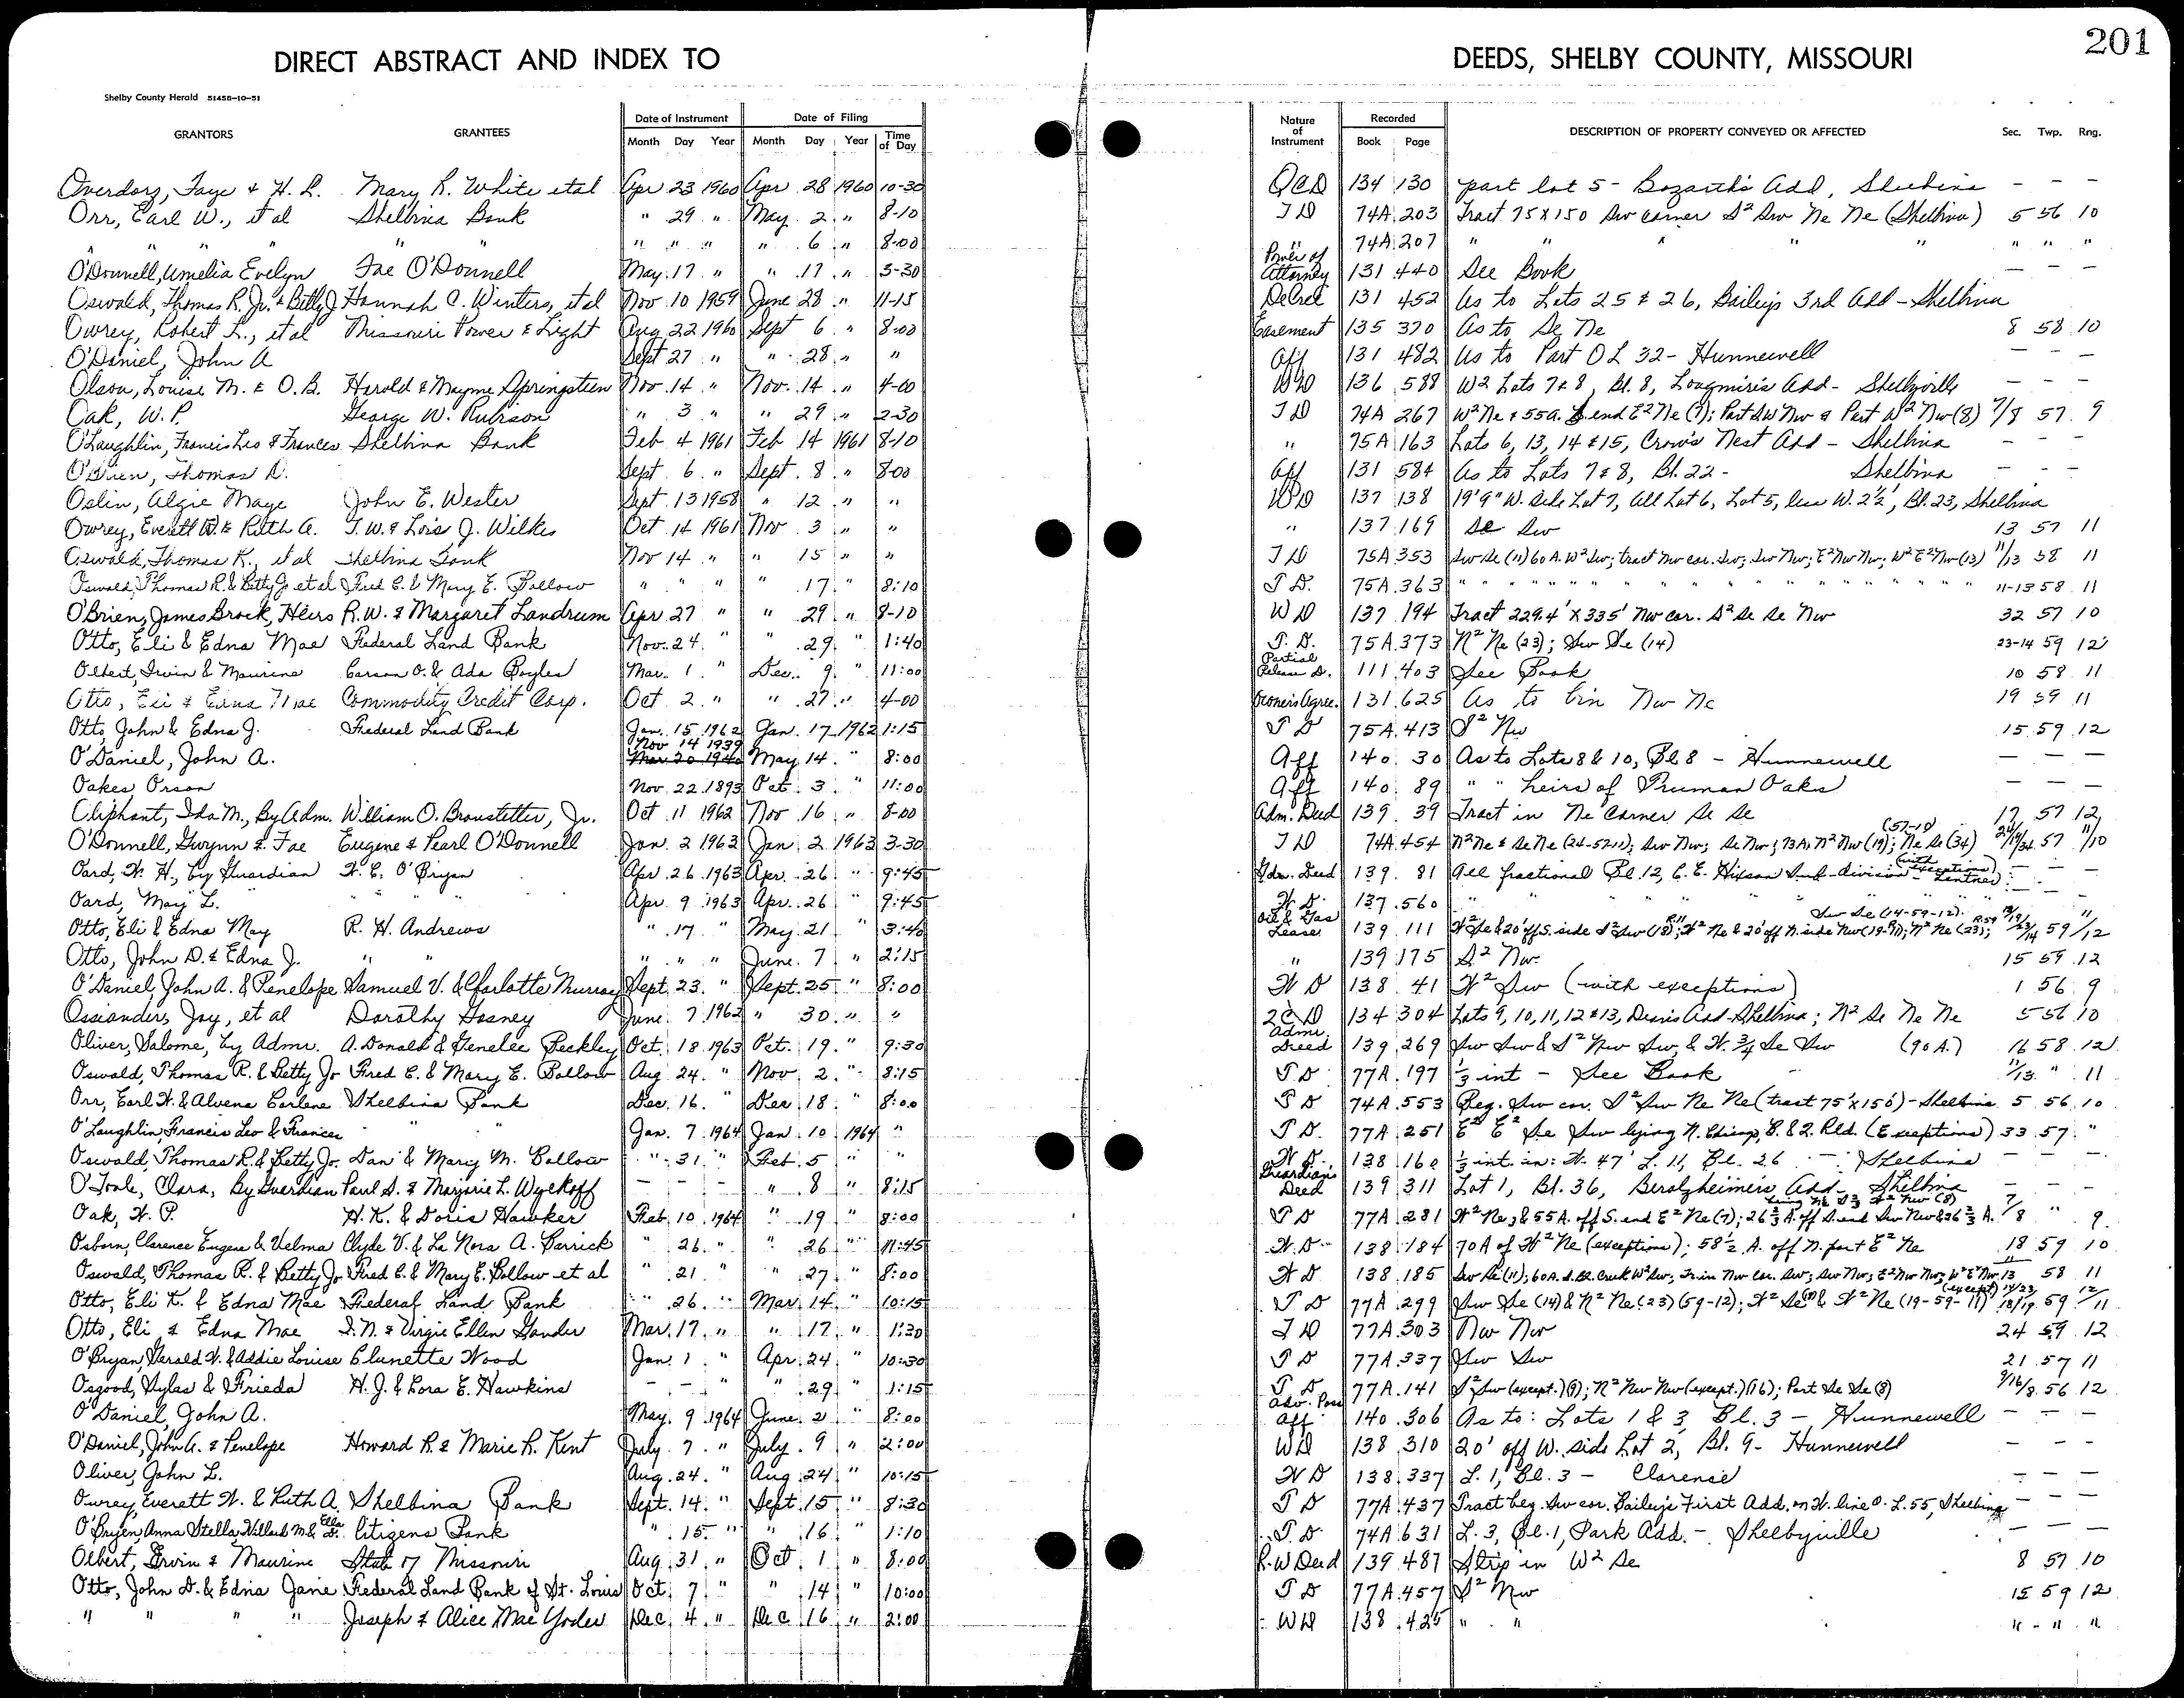 201
DIRECT ABSTRACT AND INDEX TO DEEDS, SHELBY COUNTY, MISSOURI
Shelby County Herald 51458-10-51
GRANTORS GRANTEES Date of Instrument Month Day Year Date of Filing Month Day Year Time of Day Nature of Instrument Recorded Book Page DESCRIPTION OF PROPERTY CONVEYED OR AFFECTED Sec. Twp. Rng.
Overdorz, Faye & H. L. Mary R. White etal Apr 23 1960 Apr 28 1960 10-30 QCD 134 130 part lot 5 - Bozarth's Add, Shelbina — — —
Orr, Earl W., et al Shelbina Bank " 29 " May 2 " 8-10 T D 74A 203 Tract 75 X 150 Sw corner S² Sw Ne Ne (Shelbina) 5 56 10
" " " " " " " " " " 6 " 8-00 " 74A 207 " " " " " " " "
O'Donnell, Amelia Evelyn Fae O'Donnell May 17 " " 17 " 3-30 Power of Attorney 131 440 See Book — — —
Oswald, Thomas R. Jr. & Betty J Hannah C. Winters, etal Nov 10 1959 June 28 " 11-15 Decree 131 452 As to Lots 25 & 26, Bailey's 3rd Add - Shelbina
Owrey, Robert L., et al Missouri Power & Light Aug 22 1960 Sept 6 " 8:00 Easement 135 370 As to Se Ne 8 58 10
O'Daniel, John A Sept 27 " " 28 " " Aff 131 482 As to Part OL 32 - Hunnewell — — —
Olson, Louise M. & O. B. Harold & Mayme Springsteen Nov. 14 " Nov. 14 " 4-00 WD 136 588 W2 Lots 7 & 8, Bl. 8, Longmire's Add - Shelbyville — — —
Oak, W. P. George W. Rubison " 3 " " 29 " 2-30 T D 74A 267 W² Ne & 55a. S end E² Ne (7); Part SW Nw & Part N² Nw (8) 7/8 57 9
O'Laughlin, Francis Leo & Frances Shelbina Bank Feb 4 1961 Feb 14 1961 8-10 " 75A 163 Lots 6, 13, 14 & 15, Crow's Nest Add - Shelbina — — —
O'Brien, Thomas D. Sept. 6 " Sept. 8 " 8-00 Aff 131 584 As to Lots 7 & 8, Bl. 22 - Shelbina — — —
Oslin, Algie Maye John E. Wester Sept. 13 1958 " 12 " " WD 137 138 19'9" W. side Lot 7, All Lot 6, Lot 5, less W. 2½', Bl. 23, Shelbina
Owrey, Everett W. & Ruth A. T. W. & Lois J. Wilkes Oct 14 1961 Nov 3 " " " 137 169 Se Sw 13 57 11
Oswald, Thomas R., et al Shelbina Bank Nov 14 " " 15 " " T D 75A 353 Sw Se (11) 60 A. W² Sw; tract Nw cor. Sw; Sw Nw; E² Nw Nw; W² E² Nw (13) 11/13 58 11
Oswald, Thomas R. & Betty Jo et al Fred C. & Mary E. Bollow " " " " 17 " 8:10 T D. 75A 363 " " " " " " " " 11-13 58 11
O'Brien, James Brock, Heirs R. W. & Margaret Landrum Apr 27 " " 29 " 8-10 WD 137 194 Tract 229.4' X 335' Nw cor. S² Se Se Nw 32 57 10
Otto, Eli & Edna Mae Federal Land Bank Nov. 24 " " 29 " 1:40 T. D. 75A 373 N² Ne (23); Sw Se (14) 23-14 59 12
Olbert, Irvin & Maurine Carson O. & Ada Boyles Mar. 1 " Dec. 9 " 11:00 Partial Release D. 111 403 See Book 10 58 11
Otto, Eli & Edna Mae Commodity Credit Corp. Oct 2 " " 27 " 4-00 Owner's Agree. 131 625 As to bin Nw Ne 19 59 11
Otto, John & Edna J. Federal Land Bank Jan. 15 1962 Jan. 17 1962 1:15 T D 75A 413 S² Nw 15 59 12
O'Daniel, John A. Nov 14 1939 Mar 20 1940 May 14 " 8:00 Aff 140 30 As to Lots 8 & 10, Bl 8 - Hunnewell — — —
Oakes, Orson Nov. 22 1893 Oct. 3 " 11:00 Aff 140 89 " " heirs of Truman Oakes — — —
Oliphant, Ida M., By Adm. William O. Broustetter, Jr. Oct 11 1962 Nov 16 " 8-00 Adm. Deed 139 39 Tract in Ne Corner Se Se 17 57 12
O'Donnell, Gwynn & Fae Eugene & Pearl O'Donnell Jan. 2 1963 Jan 2 1963 3-30 T D 74A 454 N² Ne & Se Ne (24-57-11); Sw Nw; Se Nw; 73 A. N² Nw (19); Ne Se (34) (57-10) 24/19/34 57 11/10
Oard, W. H., by Guardian W. C. O'Bryan Apr. 26 1963 Apr. 26 " 9:45 Gdn. Deed 139 81 All fractional Bl. 12, C. E. Hixson Sub-division (with exceptions) - Lentner — —
Oard, May L. " " Apr. 9 1963 Apr. 26 " 9:45 W D 137 560 " " " " — — —
Otto, Eli & Edna May R. H. Andrews " 17 " May 21 " 3:40 Oil & Gas Lease 139 111 59 11/12
Otto, John D. & Edna J. " " " " " June. 7 " 2:15 " 139 175 S² Nw 15 59 12
O'Daniel, John A. & Penelope Samuel V. & Charlotte Murray Sept. 23 " Sept. 25 " 8:00 W D 138 41 W² Sw (with exceptions) 1 56 9
Ossianders, Joy, et al Dorothy Hosney June. 7 1962 " 30 " " QCD 134 304 Lots 9, 10, 11, 12 & 13, Davis Add. Shelbina; N² Se Ne Ne 5 56 10
Oliver, Salome, by Admr. A. Donald & Genelee Beckley Oct. 18 1963 Oct. 19 " 9:30 Admr. Deed 139 269 Sw Sw & S² Nw Sw, & W. ¾ Se Sw (90 A.) 16 58 12
Oswald, Thomas R. & Betty Jo Fred C. & Mary E. Bollow Aug 24 " Nov. 2 " 8:15 T D 77A 197 ⅓ int - See Book 11/13 " 11
Orr, Earl W. & Alvena Earlene Shelbina Bank Dec. 16 " Dec 18 " 8:00 T D 74A 553 Beg. Sw cor. S² Sw Ne Ne (tract 75' x 150') - Shelbina 5 56 10
O'Laughlin, Francis Leo & Frances " " Jan. 7 1964 Jan. 10 1964 " T D. 77A 251 E² E² Se Sw lying N. Chicag, B. & Q. Rld. (Exceptions) 33 57 "
Oswald, Thomas R. & Betty Jo. Dan & Mary M. Bollow " 31 " Feb. 5 " " W D 138 160 ⅓ int. in: W. 47' L. 11, Bl. 26 - Shelbina — — —
O'Toole, Clara, By Guardian Paul S. & Marjorie L. Wyckoff — — — " 8 " 8:15 Guardian's Deed 139 311 Lot 1, Bl. 36, Beralzheimer's Add - Shelbina — — —
Oak, W. P. H. K. & Doris Hawker Feb. 10 1964 " 19 " 8:00 T D 77A 281 W² Ne; & 55 A. off S. end E² Ne (7); 26⅔ A. off S. end Sw Nw & 26⅔ A. 7/8 " 9
Osborn, Clarence Eugene & Velma Clyde V. & La Nora A. Barrick " 26 " " 26 " 11:45 W. D 138 184 70 A of W² Ne (exceptions); 58½ A. off N. part E² Ne 18 59 10
Oswald, Thomas R. & Betty Jo Fred C. & Mary E. Bollow et al " 21 " " 27 " 8:00 W D 138 185 Sw Se (11); 60 A. S. Bl. Creek W² Sw; Tr. in Nw cor. Sw; Sw Nw; E² Nw Nw; W² E² Nw 13 58 11
Otto, Eli K. & Edna Mae Federal Land Bank " 26 " Mar. 14 " 10:15 T D 77A 299 Sw Se (14) & N² Ne (23) (59-12); W² Se (18) & W² Ne (19-59-11) (except) 14/23/18/19 59 12/11
Otto, Eli & Edna Mae I. N. & Virgie Ellen Gander Mar. 17 " " 17 " 1:30 T D 77A 303 Nw Nw 24 59 12
O'Bryan, Gerald W. & Addie Louise Clunette Wood Jan. 1 " Apr. 24 " 10:30 T D 77A 337 Sw Sw 21 57 11
Osgood, Sylas & Frieda H. J. & Lora E. Hawkins — — " " 29 " 1:15 T D 77A 141 S² Sw (except.) (9); N² Nw Nw (except.) (16); Part Se Se (8) 9/16/8 56 12
O'Daniel, John A. May. 9 1964 June. 2 " 8:00 Adv. Poss Aff 140 306 As to: Lots 1 & 3, Bl. 3 - Hunnewell — — —
O'Daniel, John A. & Penelope Howard R. & Marie R. Kent July. 7 " July. 9 " 2:00 WD 138 310 20' off W. side Lot 2, Bl. 9 - Hunnewell — — —
Oliver, John L. Aug. 24 " Aug 24 " 10:15 W D 138 337 L. 1, Bl. 3 - Clarence — — —
Owrey, Everett W. & Ruth A. Shelbina Bank Sept. 14 " Sept. 15 " 8:30 T D 77A 437 Tract beg. Sw cor. Bailey's First Add. on W. line O. L. 55, Shelbina — —
O'Bryen, Anna Stella, Willard M. & Ella D. Citizens Bank " 15 " " 16 " 1:10 T. D 74A 631 L. 3, Bl. 1, Park Add. - Shelbyville — — —
Olbert, Irvin & Maurine State of Missouri Aug 31 " Oct 1 " 8:00 R. W Deed 139 487 Strip in W² Se 8 57 10
Otto, John D. & Edna Jane Federal Land Bank of St. Louis Oct. 7 " " 14 " 10:00 T D 77A 457 S² Nw 15 59 12
" " " " Joseph & Alice Mae Yoder Dec. 4 " Dec 16 " 2:00 WD 138 425 " " " " "